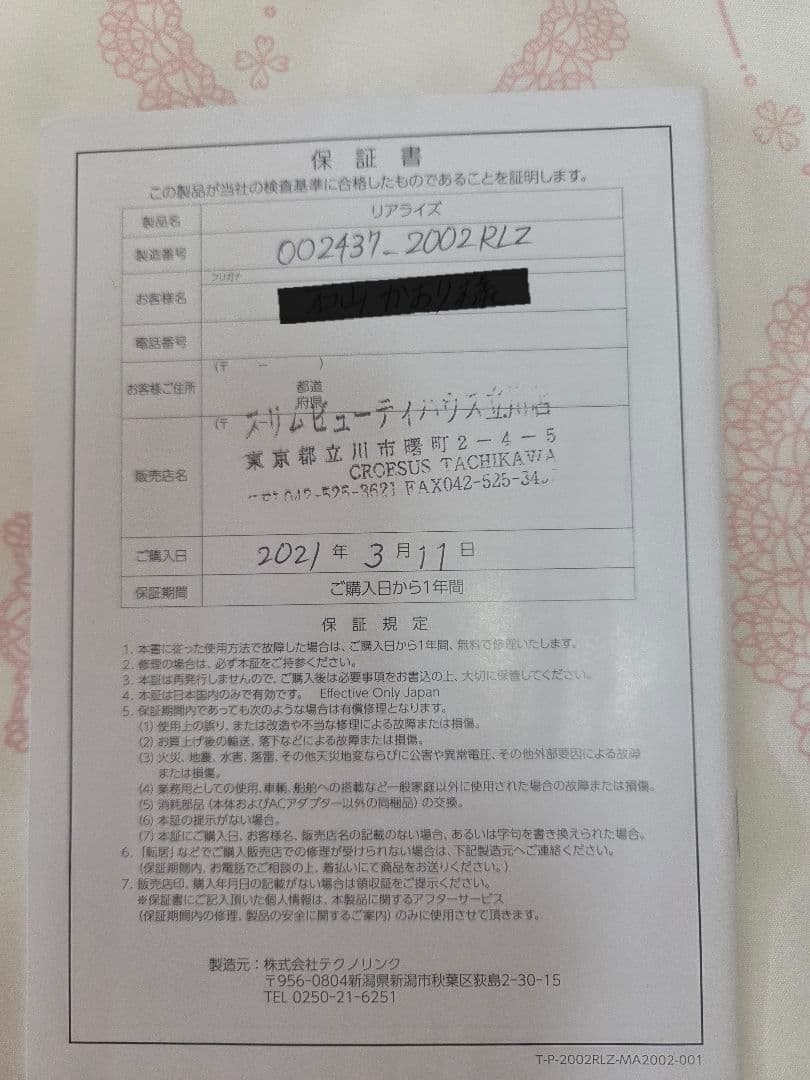 保証書
この製品が当社の検査基準に合格したものであることを証明します。
製品名 リアライズ
製造番号 002437-2002RLZ
フリガナ
お客様名
電話番号
お客様ご住所 (〒 － )
都道
府県
販売店名 (〒 スリムビューティハウス立川店
東京都立川市曙町2-4-5
CROESUS TACHIKAWA
042-525-3621 FAX042-525-34
ご購入日 2021年3月11日
保証期間 ご購入日から1年間
保証規定
1. 本書に従った使用方法で故障した場合は、ご購入日から1年間、無料で修理いたします。
2. 修理の場合は、必ず本証をご持参ください。
3. 本証は再発行しませんので、ご購入後は必要事項をお書込の上、大切に保管してください。
4. 本証は日本国内のみで有効です。 Effective Only Japan
5. 保証期間内であっても次のような場合は有償修理となります。
(1) 使用上の誤り、または改造や不当な修理による故障または損傷。
(2) お買上げ後の輸送、落下などによる故障または損傷。
(3) 火災、地震、水害、落雷、その他天災地変ならびに公害や異常電圧、その他外部要因による故障
または損傷。
(4) 業務用としての使用、車輌、船舶への搭載など一般家庭以外に使用された場合の故障または損傷。
(5) 消耗部品（本体およびACアダプター以外の同梱品）の交換。
(6) 本証の提示がない場合。
(7) 本証にご購入日、お客様名、販売店名の記載のない場合、あるいは字句を書き換えられた場合。
6. 「転居」などでご購入販売店での修理が受けられない場合は、下記製造元へご連絡ください。
（保証期間内、お電話でご相談の上、着払いにて商品をお送りください。）
7. 販売店印、購入年月日の記載がない場合は領収証をご提示ください。
※保証書にご記入頂いた個人情報は、本製品に関するアフターサービス
（保証期間内の修理、製品の安全に関するご案内）のみに使用させて頂きます。
製造元：株式会社テクノリンク
〒956-0804新潟県新潟市秋葉区荻島2-30-15
TEL 0250-21-6251
T-P-2002RLZ-MA2002-001